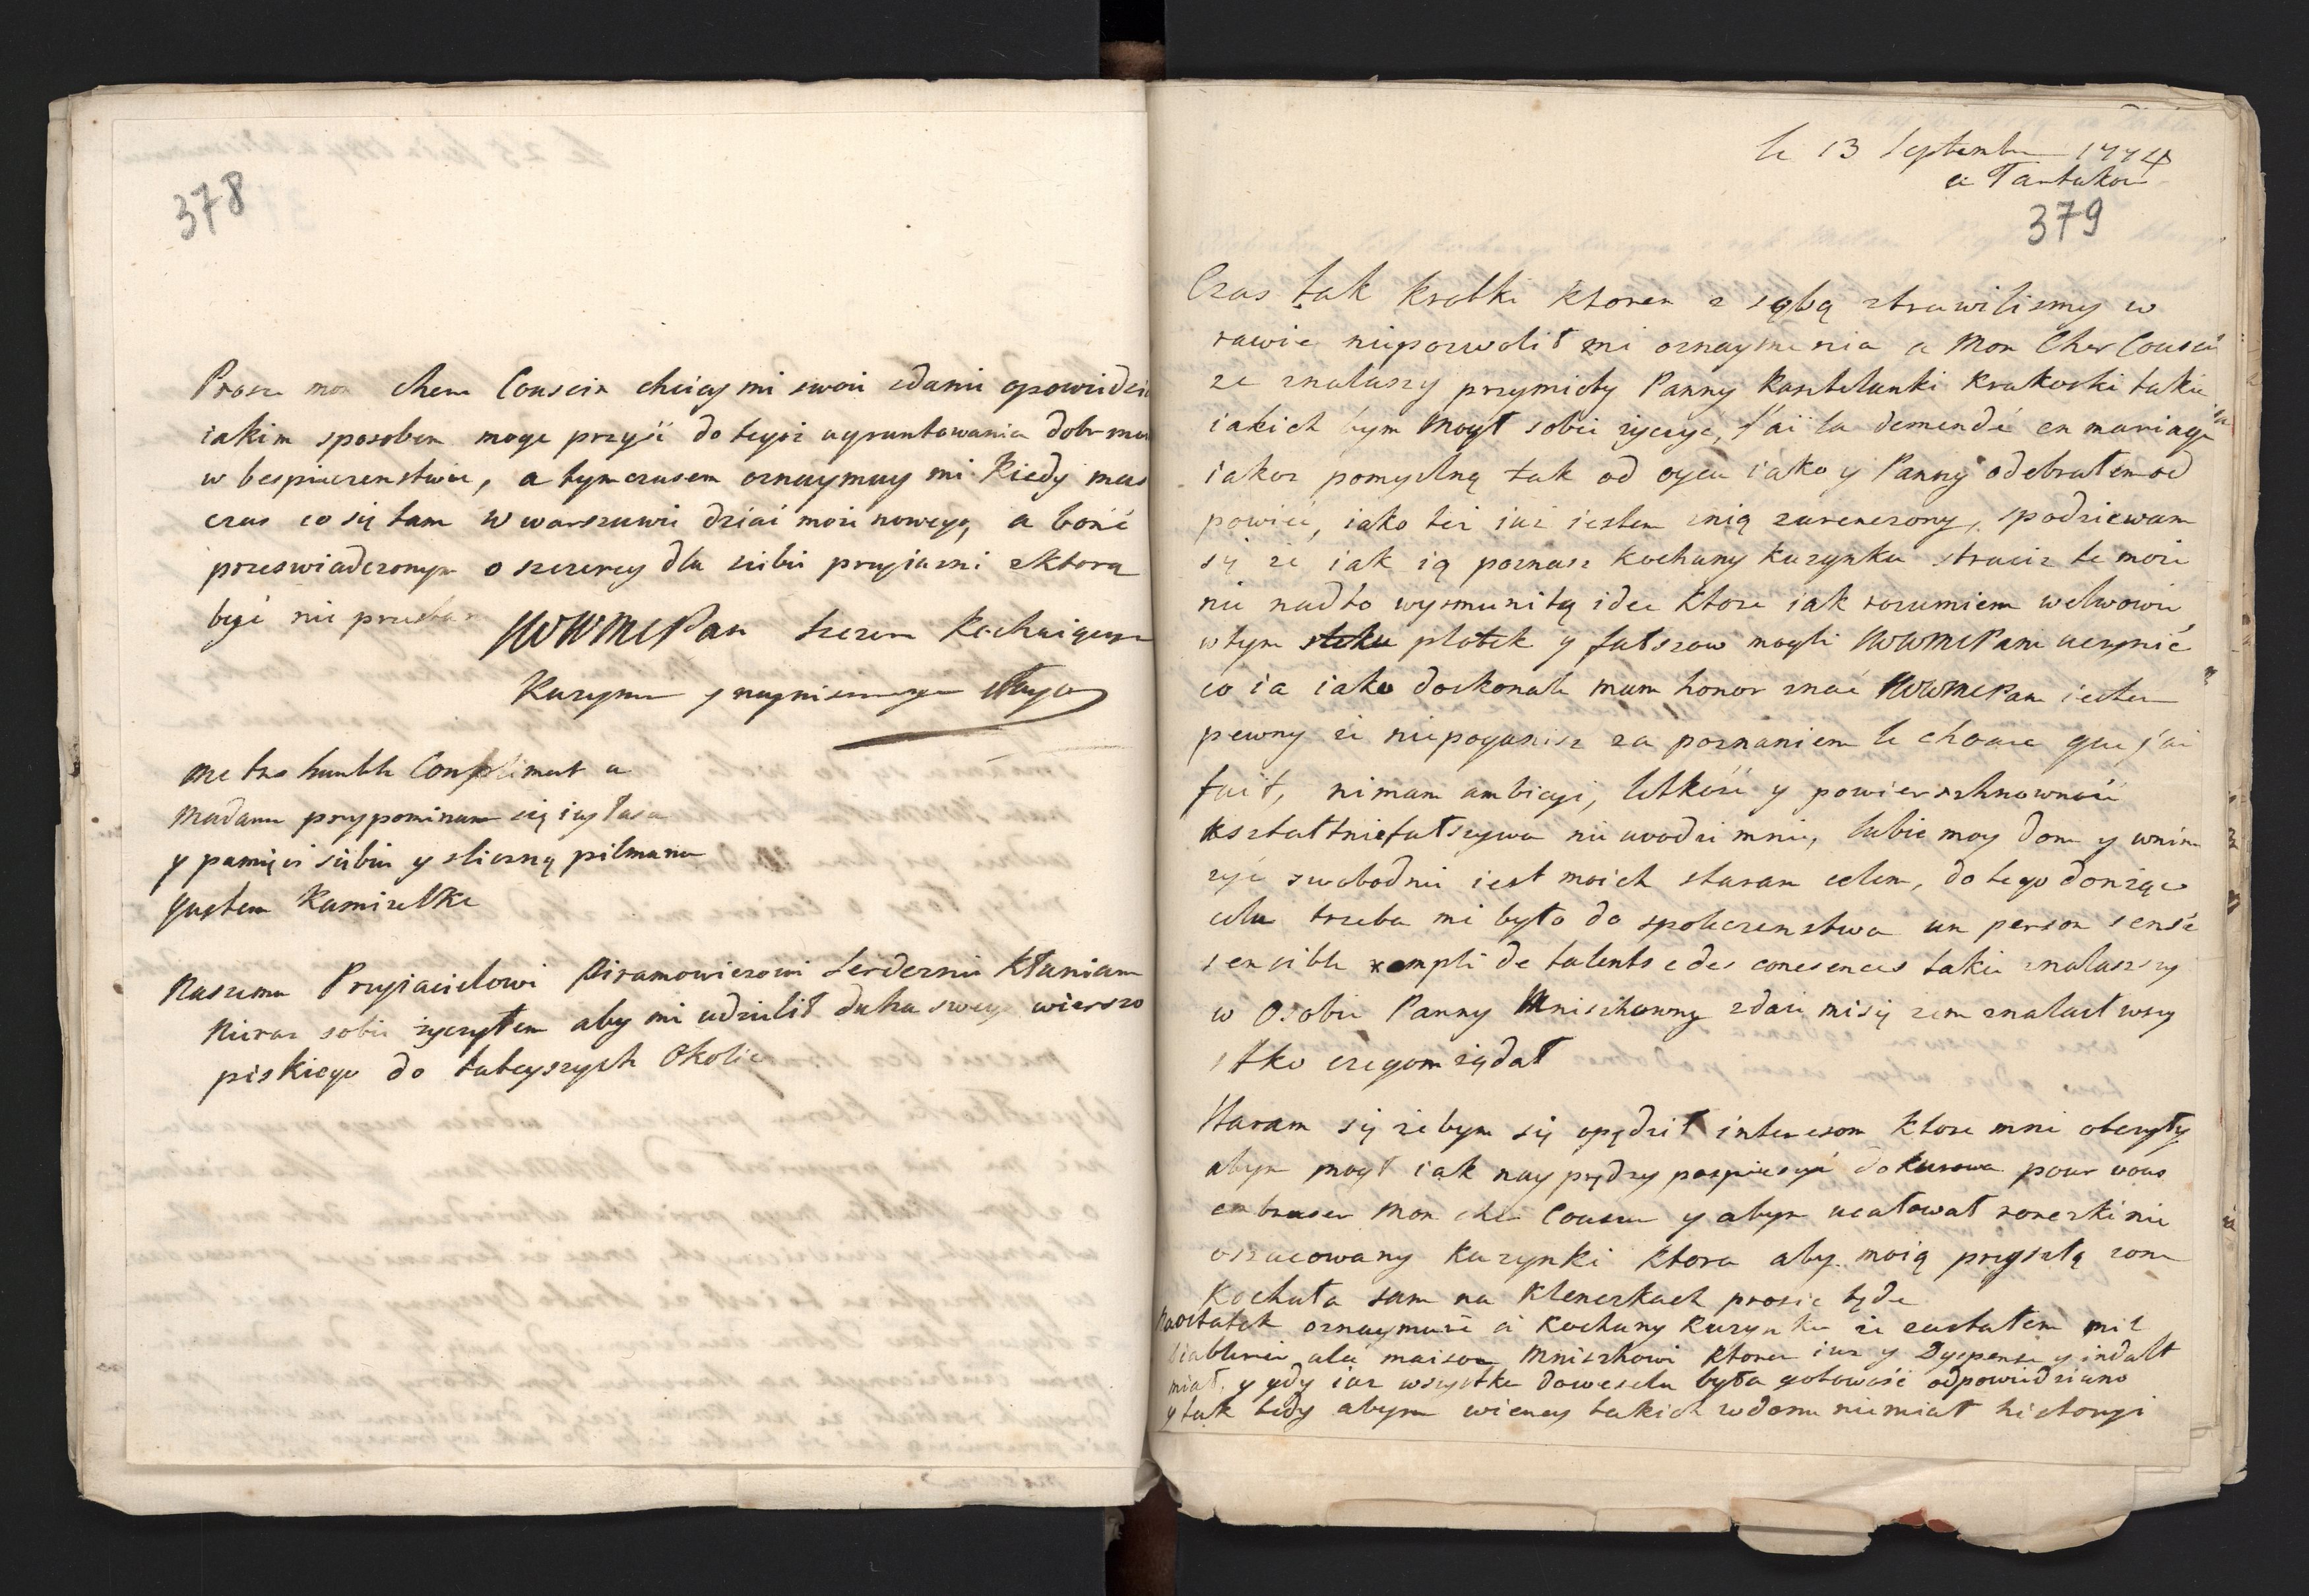 378
Prosze mon chere Cousein chciey mi swoie zdanie opowidzic
iakim sposobem moge przyść do tegoż ugruntowania dobr mu
w bespieczenstwie, a tym czasem oznaymuy mi Kiedy masz
czas co się tam w warszawie dziać może nowego, a bonć
przeswiadczonym o szczerey dla siebie przyiazni z ktorą
być nie przestan
JWWMCPan szczerze Kochaiącym
Kuzynem y nayniszszym sługą
Me tres humble Compliment a
Madame przypominam się iey łasce
y pamięci siebie y sliczną pilmana
gustem Kamizelke
Naszemu Przyiacielowi Piramowiczowi serdecznie kłaniam
Nieraz sobie zyczyłem aby mi udzielił ducha swey wierszo
piskiego do tuteyszych Okolic
le 13 Septembre 1774
a Tartakow
379
Czas tak krotki ktoren z sąbą strawilismy w
rawie niepozwolił mi oznaymienia a Mon Cher Cousin
ze znalaszy przymioty Panny Kasztelanki Krakoski takie
iakich bym mogł sobie zyczyć, j'ai la demendé en mariage
iakoz pomyslną tak od oyca iako y Panny odebrałem od
powiec, iako też iuż iestem znią zareneczony, spodziewam
się że iak ią poznasz Kochany kuzynku stracisz te moze
nie nadto wysmienitą idee ktore iak rozumiem welwowie
wtym steku plotek y fałszow mogli JWWMCPanu uczynić
co ia iako doskonale mam honor znać JWWMCPana iestem
pewny że niepoganisz za poznaniem le choaie que j'ai
fait, nimam ambicyi, letkość y powierzchnowność
kształtniefałszywa nie uwodzi mnie, lubie moy dom y wnim
zyć swobodnie iest moich staran celem, do tego donżąc
celu trzeba mi było do spoleczenstwa un person sensé
sencible rempli de talents e des conesences takie znalaszszy
w Osobie Panny Mniszhowny zdaie misię zem znalasł wszy
stko czegom rządał
Staram się zebym się opędził interesom ktore mnie obeszły
abym mogł iak nayprędzy pospieszyć do kurowa pour vous
embraser mon cher Cousin y abym ucałował roneczki nie
oszacowany kuzynki ktora aby moią przyszłą zone
Kochała sam na klenczkach prosić będe
Naostatek oznaymuie ci kochany kuzynku że zastałem mil
diableries ala maison Mniszkowi ktoren iuz y Dyspense y indult
miał, y gdy iuz wszystka dowesela była gotowość odpowiedziano
y tak tedy abym wiency takich wdomu niemiał historyi